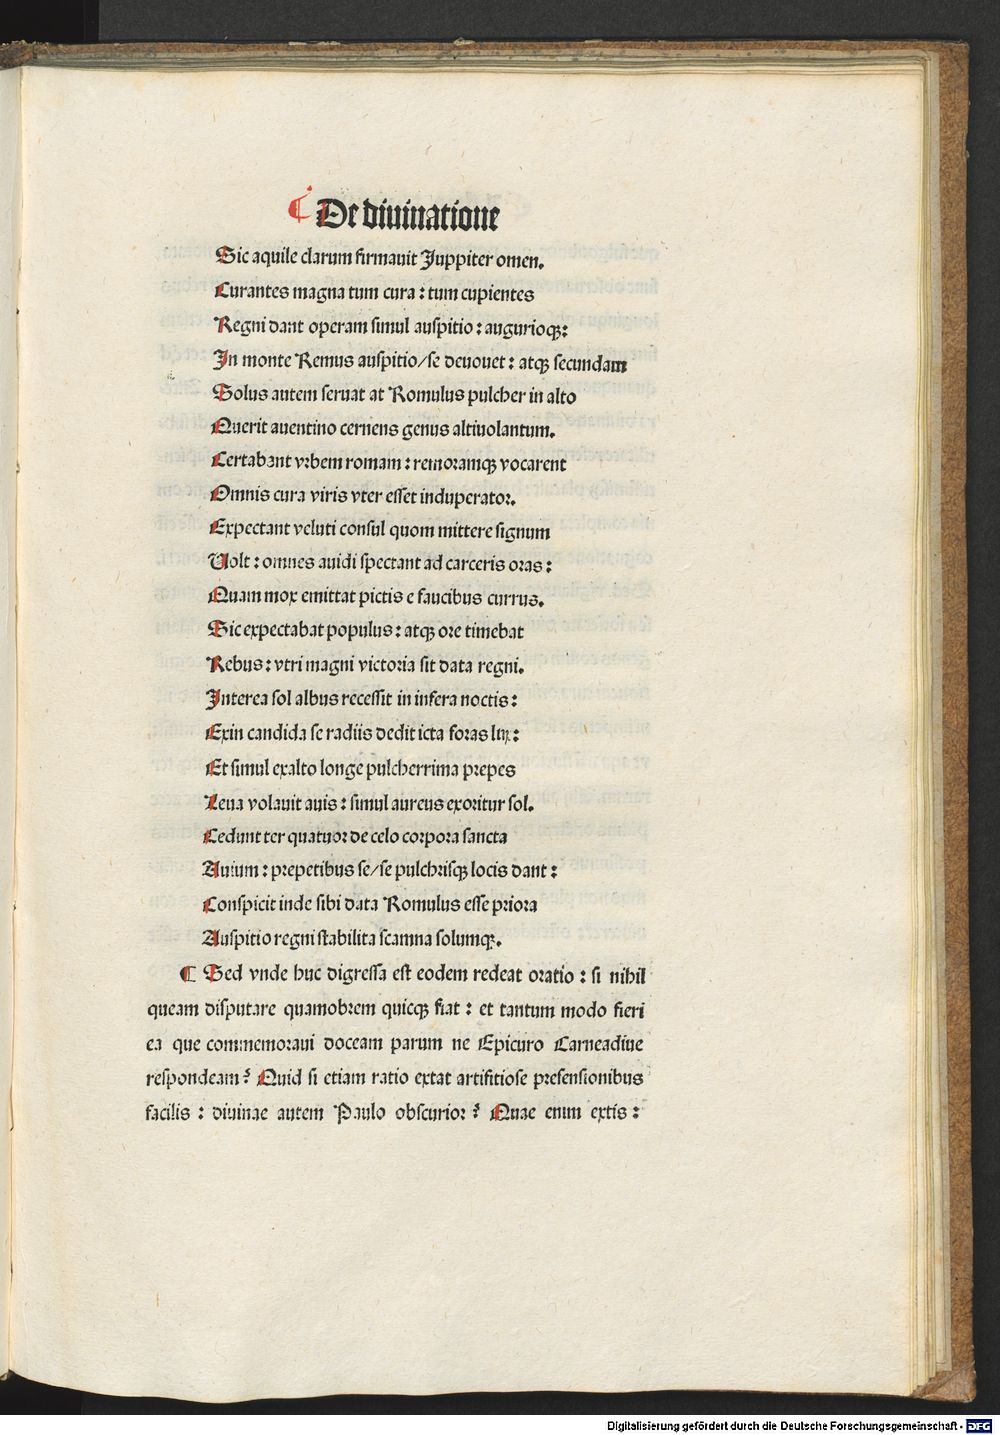 ¶ De diuinatione
Sic aquile clarum firmauit Juppiter omen.
Curantes magna tum cura : tum cupientes
Regni dant operam simul auspitio : augurioqꝫ:
In monte Remus auspitio/se deuouet : atqꝫ secundam
Solus autem seruat at Romulus pulcher in alto
Querit auentino cernens genus altiuolantum.
Certabant vrbem romam : remoramqꝫ vocarent
Omnis cura viris vter esset induperator.
Expectant veluti consul quom mittere signum
Uolt : omnes auidi spectant ad carceris oras :
Quam mox emittat pictis e faucibus currus.
Sic expectabat populus : atqꝫ ore timebat
Rebus : vtri magni victoria sit data regni.
Interea sol albus recessit in infera noctis :
Exin candida se radiis dedit icta foras lux :
Et simul exalto longe pulcherrima prepes
Leua volauit auis : simul aureus exoritur sol.
Cedunt ter quatuor de celo corpora sancta
Auium : prepetibus se/se pulchrisqꝫ locis dant :
Conspicit inde sibi data Romulus esse priora
Auspitio regni stabilita scamna solumqꝫ.
¶ Sed vnde huc digressa est eodem redeat oratio : si nihil
queam disputare quamobrem quicqꝫ fiat : et tantum modo fieri
ea que commemoraui doceam parum ne Epicuro Carneadiue
respondeam? Quid si etiam ratio extat artifitiose presensionibus
facilis : diuinae autem Paulo obscurior ? Quae enim extis :
Digitalisierung gefördert durch die Deutsche Forschungsgemeinschaft - DFG